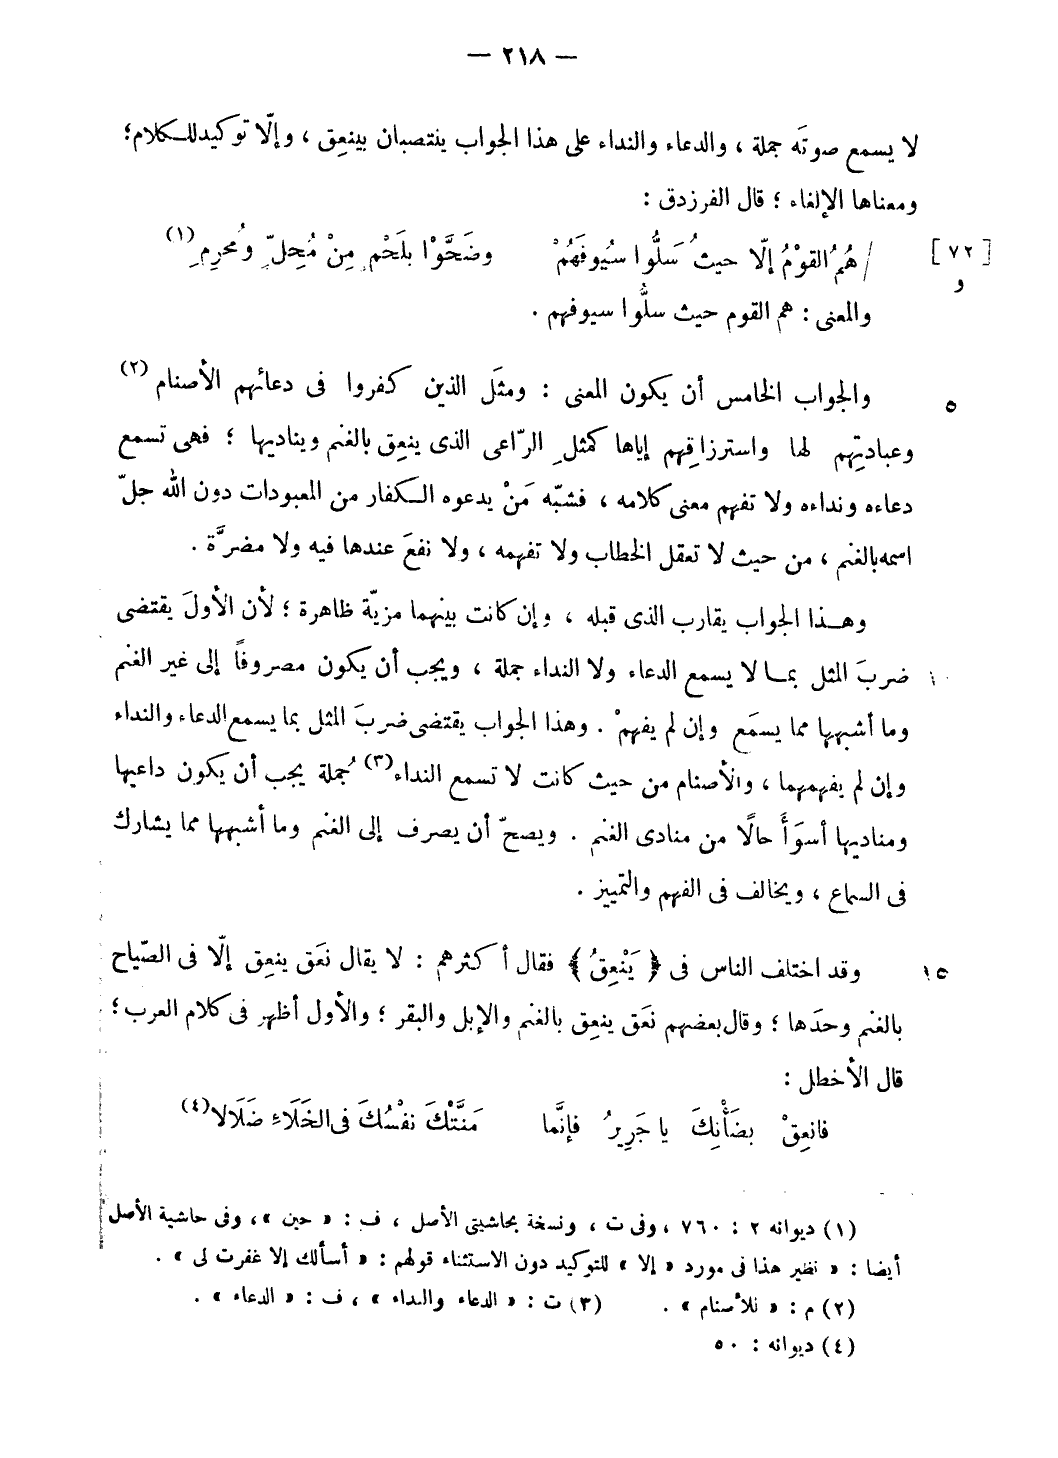 — ٢١٨ —
لا يسمع صوتَه جملة ، والدعاء والنداء على هذا الجواب ينتصبان بينعِق ، وإلّا توكيد للكلام؛
ومعناها الإلغاء ؛ قال الفرزدق :
[ ٧٢ ] / هُمُ القوْمُ إلّا حيثُ سَلُّوا سيُوفَهُمْ وضَحَّوْا بلَحْمٍ مِنْ مُحِلٍّ ومُحرِمِ (١)
و
والمعنى : هم القوم حيث سلُّوا سيوفهم .
٥ والجواب الخامس أن يكون المعنى : ومثَل الذين كفروا فى دعائهم الأصنام (٢)
وعبادتِهم لها واسترزاقِهم إياها كمثلِ الرّاعى الذى ينعِق بالغنم ويناديها ؛ فهى تسمع
دعاءه ونداءه ولا تفهم معنى كلامه ، فشبّه مَنْ يدعوه الكفار من المعبودات دون الله جلّ
اسمه بالغنم ، من حيث لا تعقل الخطاب ولا تفهمه ، ولا نفعَ عندها فيه ولا مضرَّة .
وهذا الجواب يقارب الذى قبله ، وإن كانت بينهما مزيّة ظاهرة ؛ لأن الأولَ يقتضى
١٠ ضربَ المثل بما لا يسمع الدعاء ولا النداء جملة ، ويجب أن يكون مصروفاً إلى غير الغنم
وما أشبهها مما يسمَع وإن لم يفهمْ . وهذا الجواب يقتضى ضربَ المثل بما يسمع الدعاء والنداء
وإن لم يفهمهما ، والأصنام من حيث كانت لا تسمع النداء (٣) جُملة يجب أن يكون داعيها
ومناديها أسوَأَ حالًا من منادى الغنم . ويصحّ أن يصرف إلى الغنم وما أشبهها مما يشارك
فى السماع ، ويخالف فى الفهم والتمييز .
١٥ وقد اختلف الناس فى ﴿ يَنْعِقُ ﴾ فقال أكثرهم : لا يقال نعَق ينعِق إلّا فى الصّياح
بالغنم وحدَها ؛ وقال بعضهم نعَق ينعِق بالغنم والإبل والبقر ؛ والأول أظهر فى كلام العرب ؛
قال الأخطل :
فانعِقْ بضَأْنِكَ يا جَرِيرُ فإنَّما مَنَّتْكَ نفْسُكَ فى الخَلَاءِ ضَلَالا (٤)
(١) ديوانه ٢ : ٧٦٠ ، وفى ت ، ونسخة بحاشيتى الأصل ، ف : « حين » ، وفى حاشية الأصل
أيضا : « نظير هذا فى مورد « إلا » للتوكيد دون الاستثناء قولهم : « أسألك إلا غفرت لى » .
(٢) م : « للأصنام » . (٣) ت : « الدعاء والنداء » ، ف : « الدعاء » .
(٤) ديوانه : ٥٠